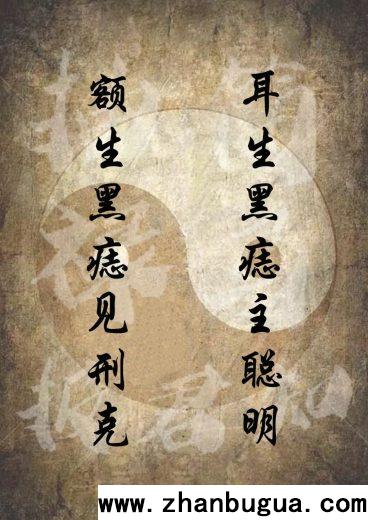 耳生黑痣主聪明
额生黑痣见刑克
www.zhanbugua.com